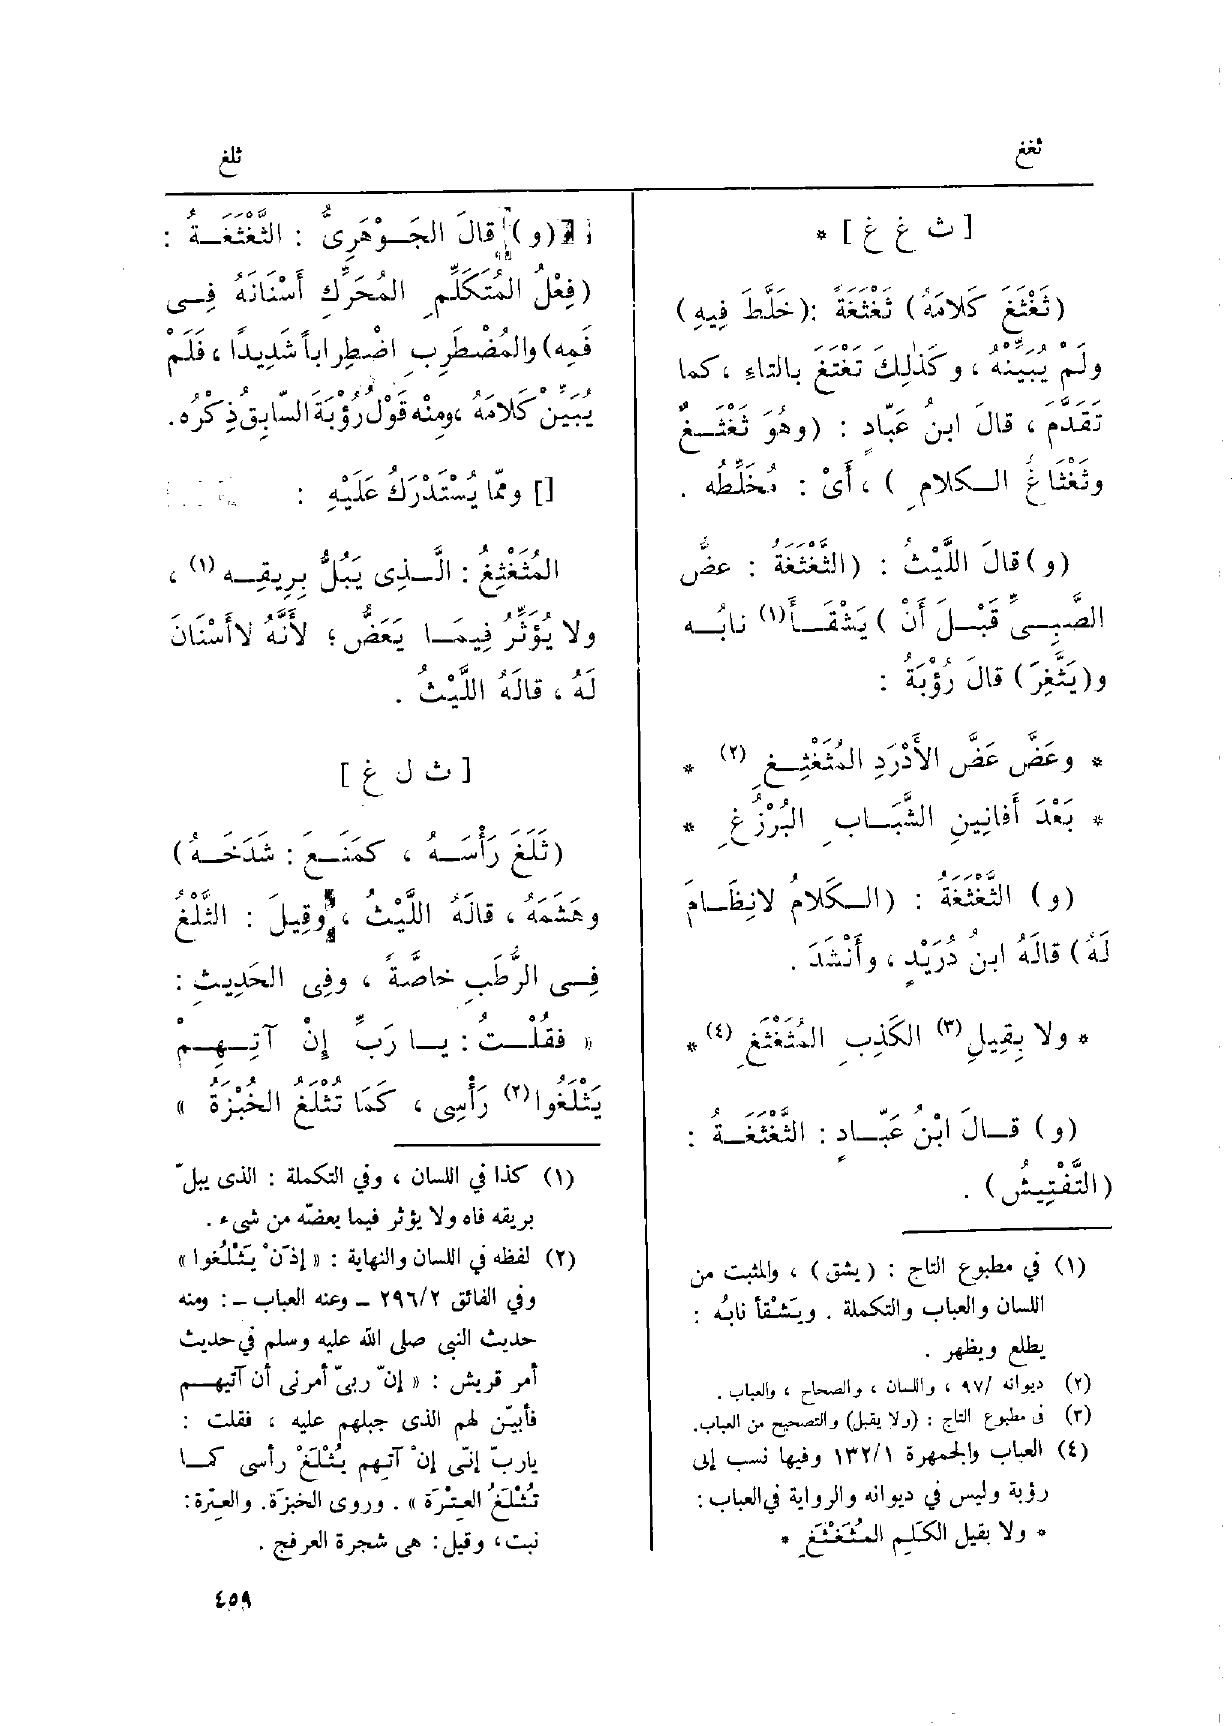 ثغغ
ثلغ
[ ث غ غ ] *
(ثَغْثَغَ كَلامَهُ) ثَغْثَغَةً :(خَلَّطَ فِيهِ)
ولَمْ يُبَيِّنْهُ ، وكَذٰلِكَ تَغْتَغَ بالتاءِ ، كما
تَقَدَّمَ ، قالَ ابنُ عَبّادٍ : (وهُوَ ثَغْثَـغٌ
وثَغْثَاغُ الـكلامِ ) ، أَىْ : مُخَلِّطُه .
(و) قالَ اللَّيْثُ : (الثَّغْثَغَةُ : عَضُّ
الصَّبِـىِّ قَبْـلَ أَنْ ) يَشْقَـأَ(١) نابُـه
و(يَثَّغِرَ) قالَ رُؤْبَةُ :
* وعَضَّ عَضَّ الأَدْرَدِ المُثَغْثِـغِ (٢) *
* بَعْدَ أَفانِينِ الشَّبَـابِ البُرْزُغِ *
(و) الثَّغْثَغَةُ : (الـكَلامُ لانِظَـامَ
لَهُ) قالَهُ ابنُ دُرَيْدٍ ، وأَنْشَدَ .
* ولا بِقِيلِ (٣) الكَذِبِ المُثَغْثَغِ (٤) *
(و) قـالَ ابْنُ عَبّـادٍ : الثَّغْثَغَـةُ :
(التَّفْتِيشُ) .
(١) في مطبوع التاج : (يشق) ، والمثبت من
اللسان والعباب والتكملة . ويَشْقأ نابُه :
يطلع ويظهر .
(٢) ديوانه /٩٧ ، واللسان ، والصحاح ، والعباب .
(٣) فى مطبوع التاج : (ولا يقبل) والتصحيح من العباب.
(٤) العباب والجمهرة ١٣٢/١ وفيها نسب إلى
رؤبة وليس في ديوانه والرواية في العباب :
* ولا بقيل الكَلِمِ المُثَغْثَغِ *
(و) قالَ الجَـوْهَرِىُّ : الثَّغْثَغَـةُ :
(فِعْلُ المُتَكَلِّمِ المُحَرِّكِ أَسْنَانَهُ فِـى
فَمِه) والمُضْطَرِبِ اضْطِراباً شَدِيدًا ، فَلَمْ
يُبَيِّنْ كَلامَهُ ،ومِنْه قَوْلُ رُؤْبَةَ السّابِقُ ذِكْرُه.
[] وممّا يُسْتَدْرَكُ عَلَيْهِ :
المُثَغْثِغُ : الَّـذِى يَبُلُّ بِرِيقِـه (١) ،
ولا يُؤَثِّرُ فِيمَـا يَعَضُّ ؛ لأَنَّهُ لاأَسْنَانَ
لَهُ ، قالَهُ اللَّيْثُ .
[ ث ل غ ]
(ثَلَغَ رَأْسَـهُ ، كمَنَـعَ : شَدَخَـهُ)
وهَشَمَهُ ، قالَهُ اللَّيْثُ ، وقِيلَ : الثَّلْغُ
فِـى الرُّطَبِ خاصَّةً ، وفِى الحَدِيثِ :
« فقُلْـتُ : يـا رَبِّ إِنْ آتِـهِـمْ
يَثْلَغُوا(٢) رَأْسِى ، كَمَا تُثْلَغُ الخُبْزَةُ »
(١) كذا في اللسان ، وفي التكملة : الذى يبلّ
بريقه فاه ولا يؤثر فيما يعضّه من شىء .
(٢) لفظه في اللسان والنهاية : « إِذَنْ يَثْلَغُوا »
وفي الفائق ٢٩٦/٢ ـ وعنه العباب ـ : ومنه
حديث النبى صلى الله عليه وسلم في حديث
أمر قريش : « إنّ ربىّ أمرنى أن آتيهـم
فأبيّن لهم الذى جبلهم عليه ، فقلت :
ياربّ إنّى إنْ آتهم يُثْلَغْ رأسى كـما
تُثْلَغُ العِتْرَة » . وروى الخبزَة. والعِتْرة:
نبت، وقيل : هى شجرة العرفج .
٤٥٩